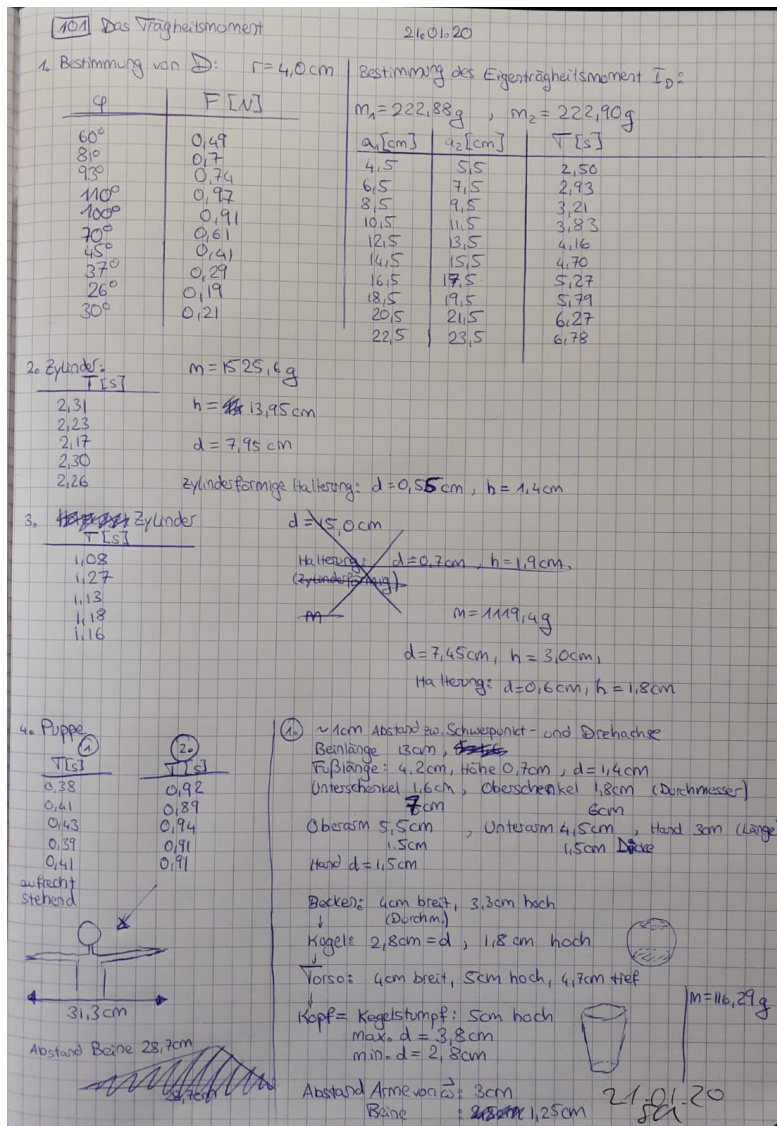 101 Das Trägheitsmoment 21.01.20
1. Bestimmung von D: r=4,0cm
φ F [N]
60° 0,49
81° 0,7
93° 0,74
110° 0,97
100° 0,91
70° 0,61
45° 0,41
37° 0,29
26° 0,19
30° 0,21
Bestimmung des Eigenträgheitsmoment I_D:
m₁=222,88g , m₂=222,90g
a₁[cm] a₂[cm] T[s]
4,5 5,5 2,50
6,5 7,5 2,93
8,5 9,5 3,21
10,5 11,5 3,83
12,5 13,5 4,16
14,5 15,5 4,70
16,5 17,5 5,27
18,5 19,5 5,79
20,5 21,5 6,27
22,5 23,5 6,78
2. Zylinder: m=1525,6g
T[s]
2,31 h= 13,95cm
2,23
2,17 d=7,95cm
2,30
2,26 zylinderförmige Halterung: d=0,55cm, h=1,4cm
3. Zylinder
T[s]
1,08
1,27
1,13
1,18
1,16
d=15,0cm
Halterung: d=0,7cm, h=1,9cm,
(Zylinderförmig)
m
m=1119,4g
d=7,45cm, h=3,0cm,
Halterung: d=0,6cm, h=1,8cm
4. Puppe
1 2.
T[s] T[s]
0,38 0,92
0,41 0,89
0,43 0,94
0,39 0,91
0,41 0,91
aufrecht
stehend
31,3cm
Abstand Beine 28,7cm
1. ~1cm Abstand zw. Schwerpunkt- und Drehachse
Beinlänge 13cm,
Fußlänge: 4,2cm, Höhe 0,7cm, d=1,4cm
Unterschenkel 1,6cm, Oberschenkel 1,8cm (Durchmesser)
7cm 6cm
Oberarm 5,5cm , Unterarm 4,5cm , Hand 3cm (Länge
1.5cm 1,5cm Dicke
Hand d=1,5cm
Becken: 4cm breit, 3,3cm hoch
↓ (Durchm.)
Kugel: 2,8cm=d, 1,8cm hoch
↓
Torso: 4cm breit, 5cm hoch, 4,7cm tief
↓
Kopf= Kegelstumpf: 5cm hoch
max. d = 3,8cm
min. d = 2,8cm
m=116,29g
Abstand Arme von ω⃗: 3cm
Beine : 1,25cm
21.01.20